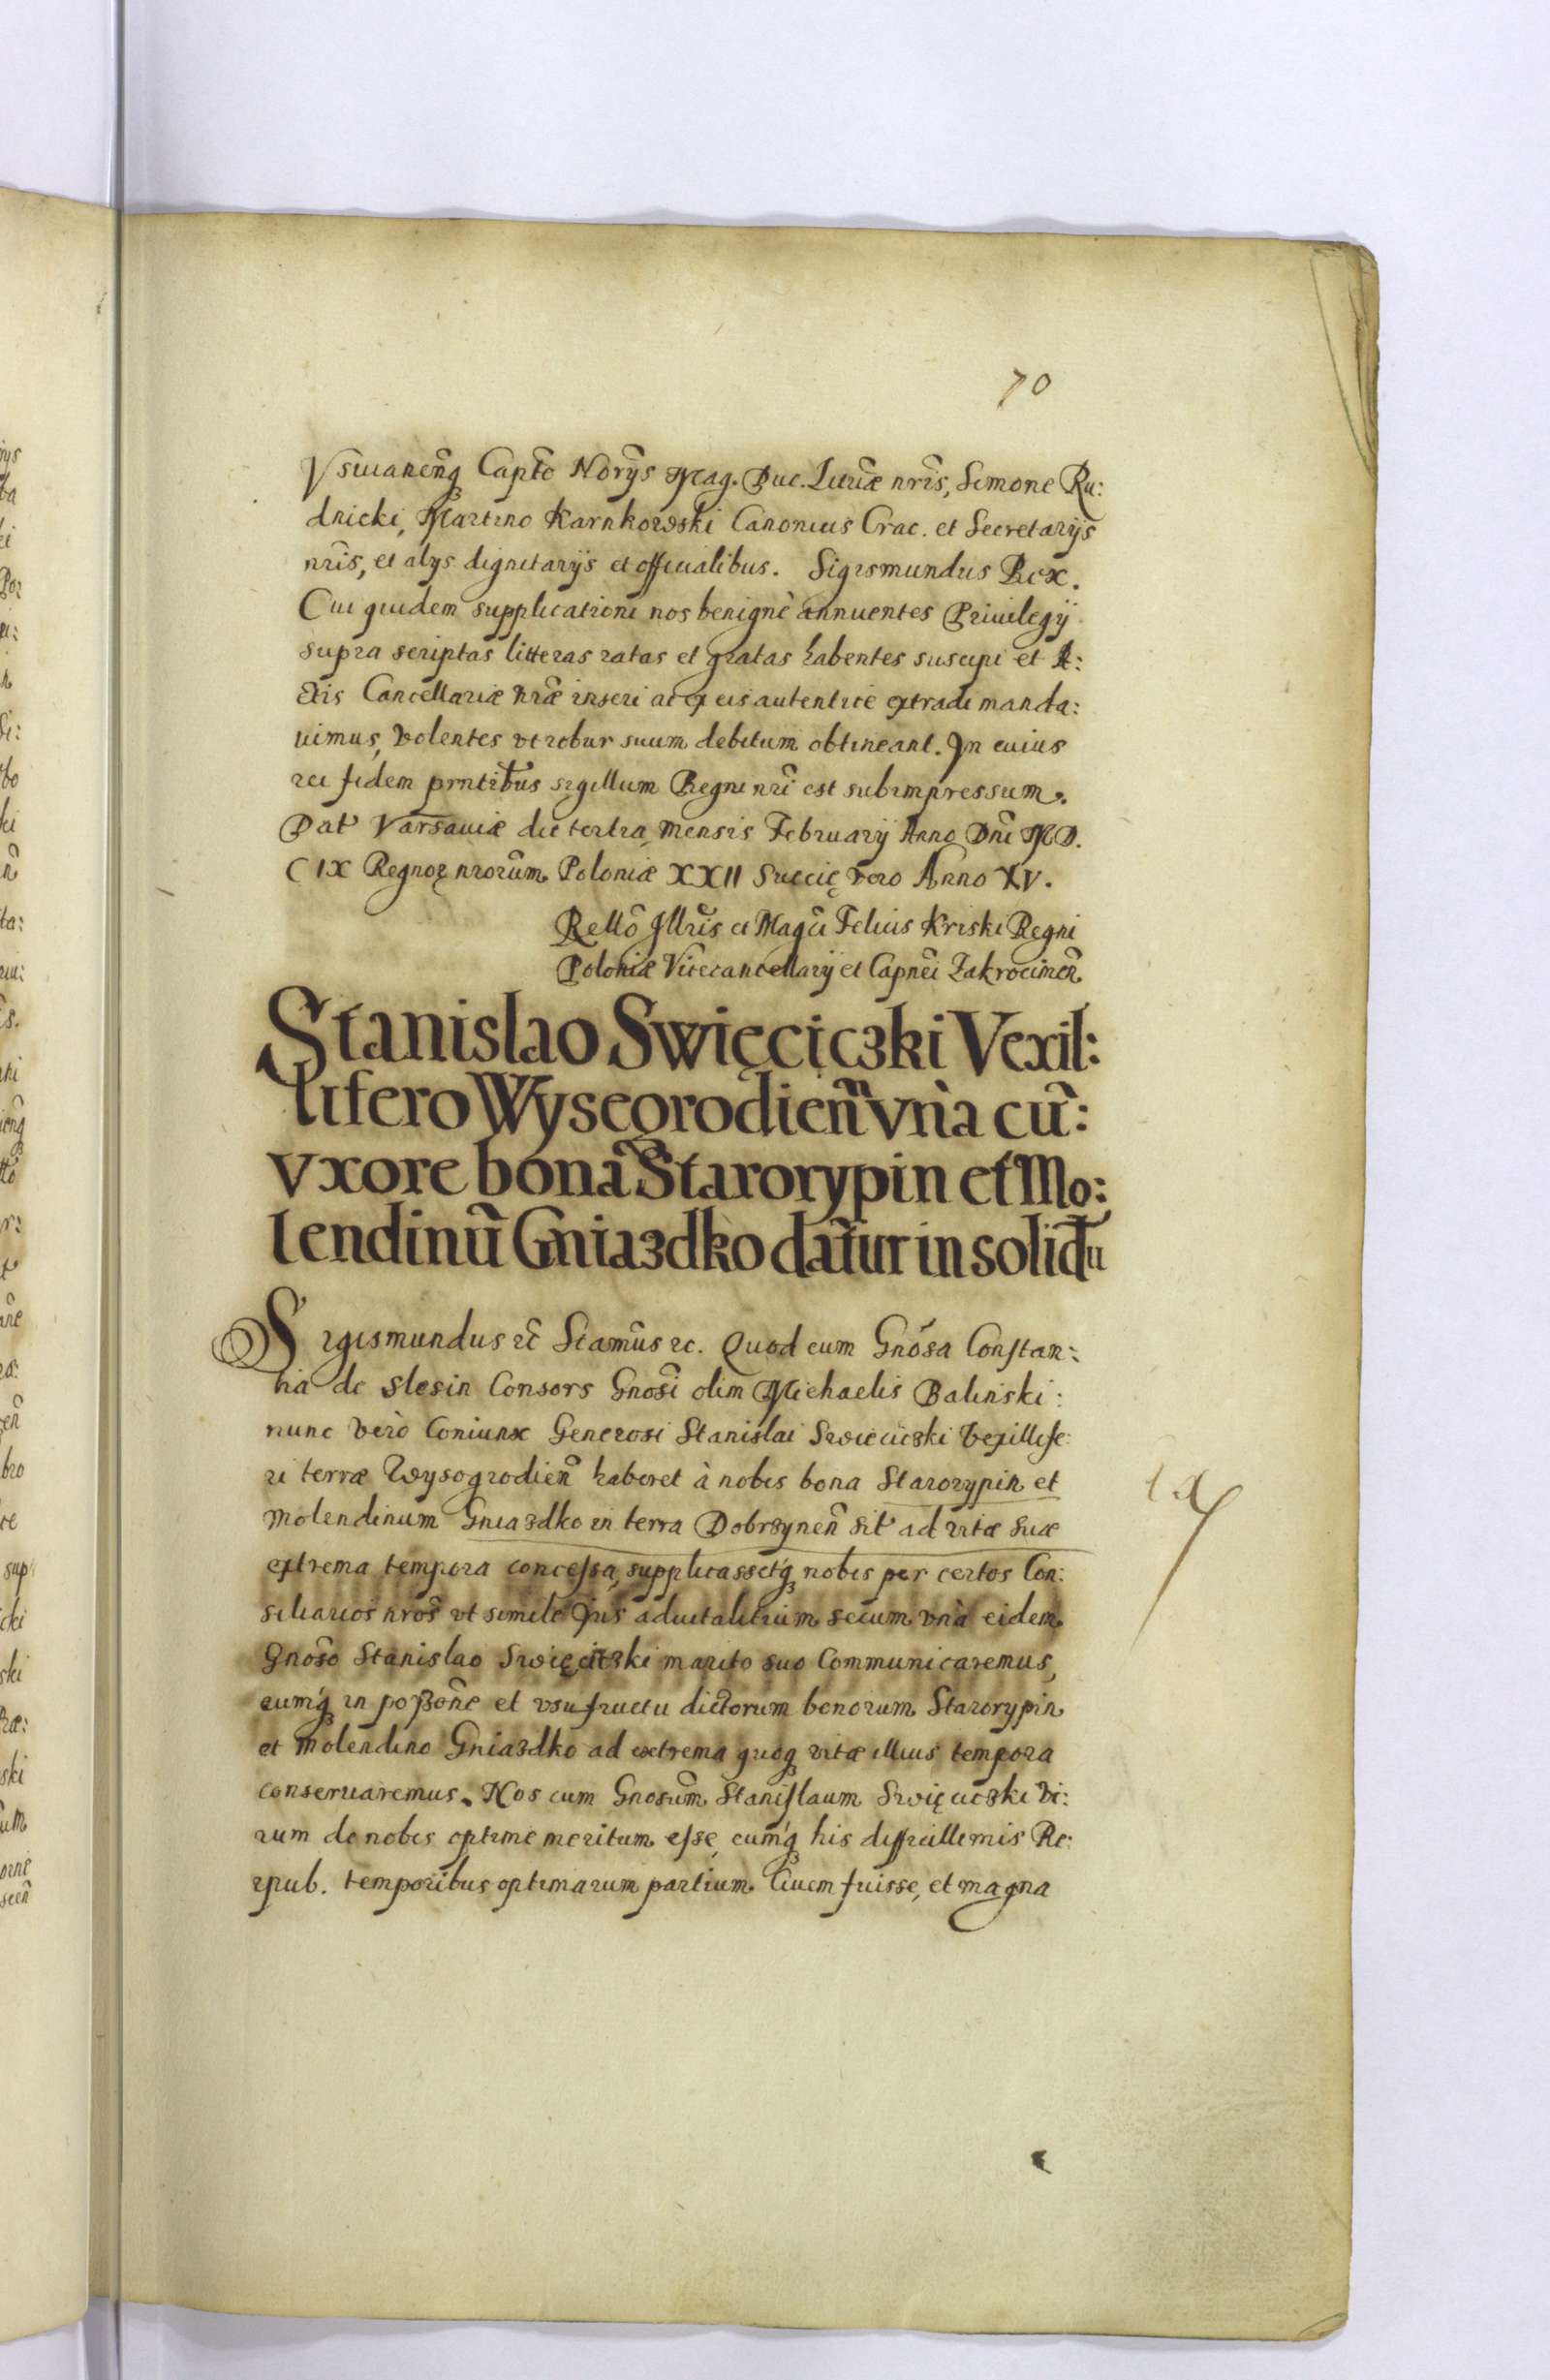 70
Vsuianeñq Capto Norys Mag. Duc. Lituæ nris, Simone Ru:
dnicki, Martino Karnkowski Canonius Crac. et Secretarijs
nris, et alys dignitarijs et officialibus. Sigismundus Rex.
Cui quidem supplicationi nos benignè annuentes Priuilegij
supra scriptas litteras ratas et gratas habentes suscipi et A:
ctis Cancellariæ nræ inseri ac ex eis autentice extradi manda:
uimus, volentes vt robur suum debitum obtineant. In cuius
rei fidem prntibus sigillum Regni nri est subimpressum.
Dat Varsauiæ die tertia mensis February Anno Dni MD.
CIX Regnoꝝ nrorum Poloniæ XXII Suecię vero Anno XV.
Rello Illris et Magci Felicis Kriski Regni
Poloniæ Vicecancellarij et Capnei Zakrocimeñ
Stanislao Swięcicʒki Vexil:
lifero Wysegrodieñ vnà cũ:
vxore bona Starorypin et Mo:
lendinũ Gniaʒdko datur in solidu
Sigismundus ec Scamus ec. Quod cum Gnosa Constan:
tia de Slesin Consors Gnosi olim Michaelis Balinski:
nunc verò Coniunx Generosi Stanislai Swięcicʒki Vexillife:
ri terræ Wysogrodieñ haberet à nobis bona Starorypin et
Molendinum Gniaʒdko in terra Dobrʒyneñ sit ad vitæ suæ
extrema tempora concessa, supplicassetq nobis per certos Con:
siliarios nros vt simile Ius aduitalitium secum vnà eidem
Gnoso Stanislao Swięcicʒki marito suo Communicaremus,
eumq in poßone et vsufructu dictorum bonorum Starorypin
et Molendino Gniaʒdko ad extrema quoq vitæ illius tempora
conseruaremus. Nos cum Gnosum Stanislaum Swięcicʒki vi:
rum de nobis optime meritum esse, eumq his difficillimis Re:
ipub. temporibus optimarum partium Ciuem fuisse, et magna